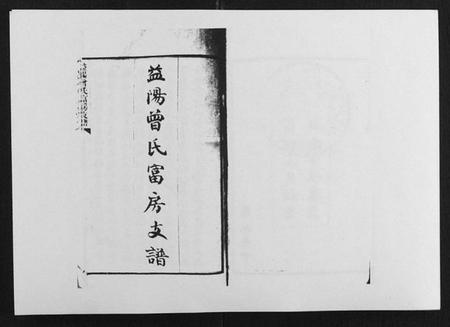 益陽曾氏富房支譜